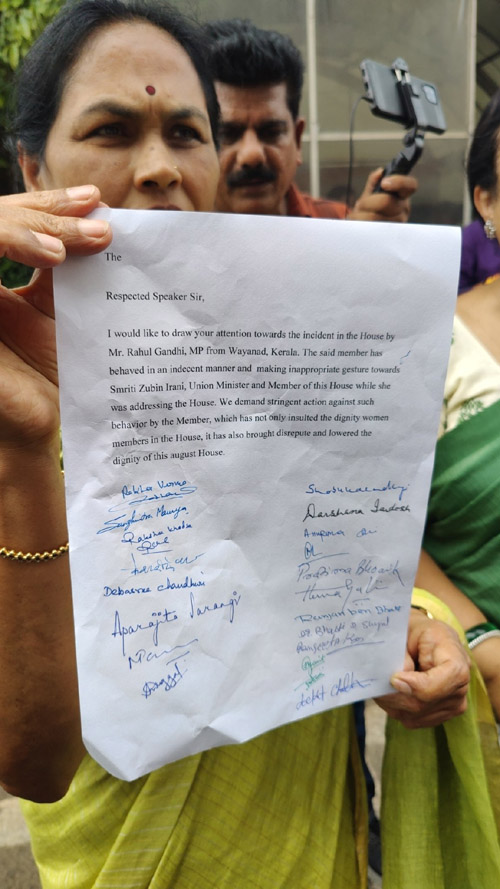 The
Respected Speaker Sir,
I would like to draw your attention towards the incident in the House by
Mr. Rahul Gandhi, MP from Wayanad, Kerala. The said member has
behaved in an indecent manner and making inappropriate gesture towards
Smriti Zubin Irani, Union Minister and Member of this House while she
was addressing the House. We demand stringent action against such
behavior by the Member, which has not only insulted the dignity women
members in the House, it has also brought disrepute and lowered the
dignity of this august House.
Rekha Verma
Sanghmitra Maurya
Debasree Chaudhuri
Aparajita Sarangi
Darshana Jardosh